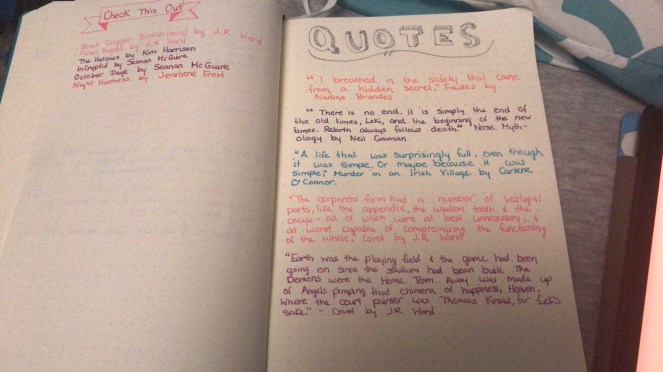 Check This Out
Black Dagger Brotherhood by J.R. Ward
Fallen Angels by J.R. Ward
The Hollows by Kim Harrison
InCryptid by Seanan McGuire
October Daye by Seanan McGuire
Night Huntress by Jeaniene Frost
QUOTES
"I breathed in the safety that came
from a hidden secret." Fawkes by
Nadine Brandes
"There is no end. It is simply the end of
the old times, Loki, and the beginning of the new
times. Rebirth always follows death." Norse Myth-
ology by Neil Gaiman
"A life that was surprisingly full, even though
it was simple. Or maybe because it was
simple." Murder in an Irish Village by Carlene
O'Connor.
"The corporeal form had a number of vestigial
parts, like the appendix, the wisdom tooth & the
- all of which were at best unnecessary, &
at worst capable of compromising the functioning
of the whole." Covet by J.R. Ward
"Earth was the playing field & the game had been
going on since the stadium had been built. The
Demons were the Home Team. Away was made up
of Angels pimping that chimera of happiness, Heaven.
Where the court painter was Thomas Kinkade, for fuck's
sake." - Covet by J.R. Ward